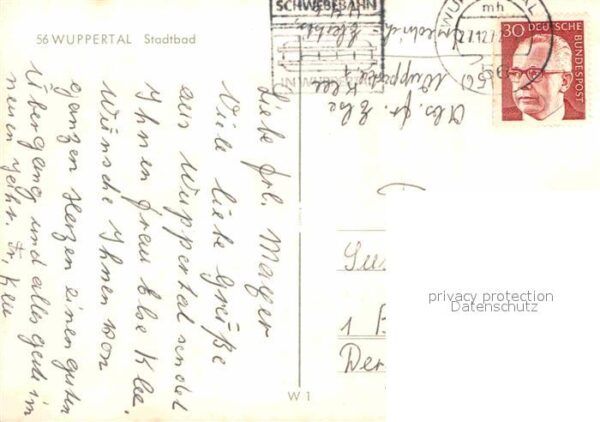 56 WUPPERTAL Stadtbad
Liebe Frl. Mayer
Viele liebe Grüße
aus Wuppertal sendet
Ihnen Frau Else Klee.
Wünsche Ihnen von
ganzen Herzen einen guten
Übergang und alles gute im
neuen Jahr. Fr. Klee
SCHWEBEBAHN
WUPPERTAL
mh
30
DEUTSCHE
BUNDESPOST
Abs. Fr. Else
Klee
Wuppertal
W 1
1 B
privacy protection
Datenschutz